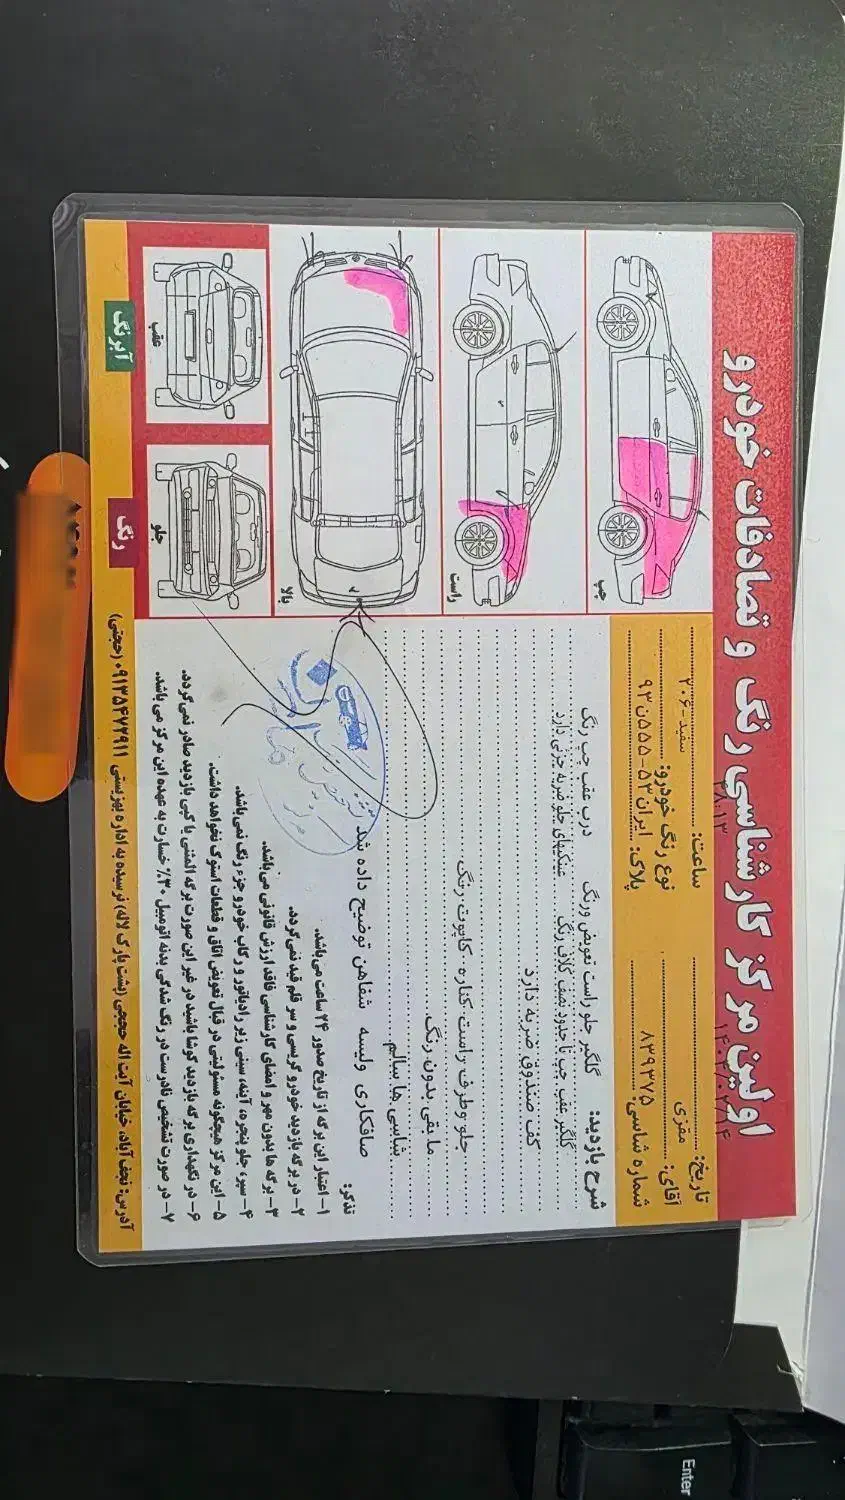 اولین مرکز کارشناسی رنگ و تصادفات خودرو
تاریخ: ۱۴۰۴/۰۲/۱۴ ساعت: ۱۸:۱۳
آقای: مقزی نوع رنگ خودرو: سفید - ۲۰۶
شماره شاسی: ۸۳۹۲۷۵ پلاک: ایران ۵۳-۵۵۵ن۹۳
شرح بازدید: گلگیر جلو راست تعویض ورنگ درب عقب چپ رنگ
گلگیر عقب چپ تا حدود نصف کلاف رنگ عینکیهای جلو ضربه جزئی دارد
کف صندوق ضربه دارد
جلو وطرف راست کناره کاپوت رنگ
مابقی بدون رنگ
شاسی ها سالم
صافکاری ولیسه شفاهن توضیح داده شد
تذکر:
۱- اعتبار این برگه از تاریخ صدور ۲۴ ساعت می‌باشد.
۲- در برگه بازدید خودرو گریسی و سر قلم قید نمی‌گردد.
۳- برگه ها بدون مهر و امضای کارشناسی فاقد ارزش قانونی می‌باشد.
۴- سپر، جلو پنجره، آینه، سینی زیر رادیاتور و رکاب خودرو جزء رنگ نمی‌باشد.
۵- این مرکز هیچگونه مسئولیتی در قبال تعویض اتاق و قطعات استوک نخواهد داشت.
۶- در نگهداری برگه بازدید کوشا باشید در غیر این صورت برگه المثنی یا کپی بازدید صادر نمی‌گردد.
۷- در صورت تشخیص نادرست در رنگ شدگی بدنه اتومبیل ۳۰٪ خسارت به عهده این مرکز می باشد.
آدرس: نجف آباد، خیابان آیت اله حججی (پشت پارک لاله) نرسیده به اداره بهزیستی ۰۹۱۳۵۴۷۲۹۱۱ (حجتی)
چپ
راست
بالا
عقب
جلو
آبرنگ
رنگ
Enter